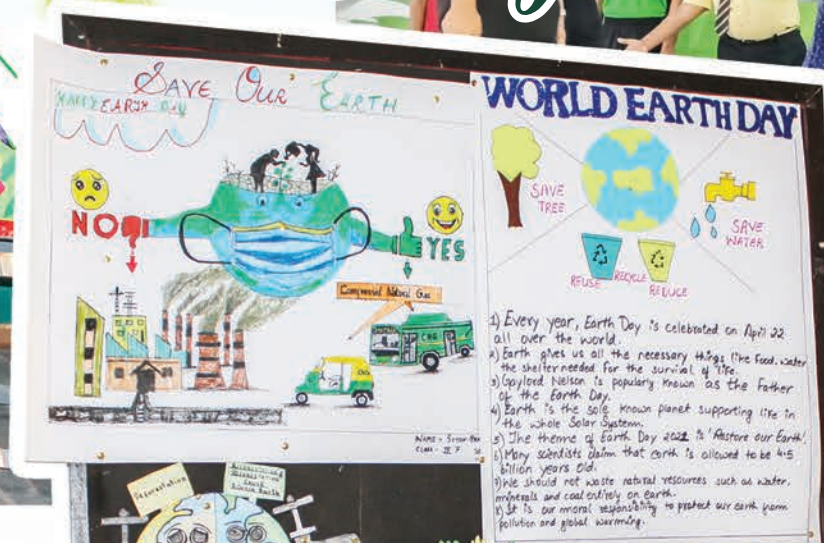 SAVE OUR EARTH
HAPPY EARTH DAY
NO
YES
Commercial Natural Gas
CNG
CNG
NAME -
CLASS -
WORLD EARTH DAY
SAVE
TREE
SAVE
WATER
REUSE
RECYCLE
REDUCE
1) Every year, Earth Day is celebrated on April 22
all over the world.
2) Earth gives us all the necessary things like Food, water
the shelter needed for the survival of life.
3) Gaylord Nelson is popularly known as the Father
of the Earth Day.
4) Earth is the sole known planet supporting life in
the whole Solar System.
5) The theme of Earth Day 2021 is 'Restore our Earth'.
6) Many scientists claim that earth is allowed to be 4.5
billion years old.
7) We should not waste natural resources such as water,
minerals and coal entirely on earth.
8) It is our moral responsibility to protect our earth from
pollution and global warming.
Deforestation